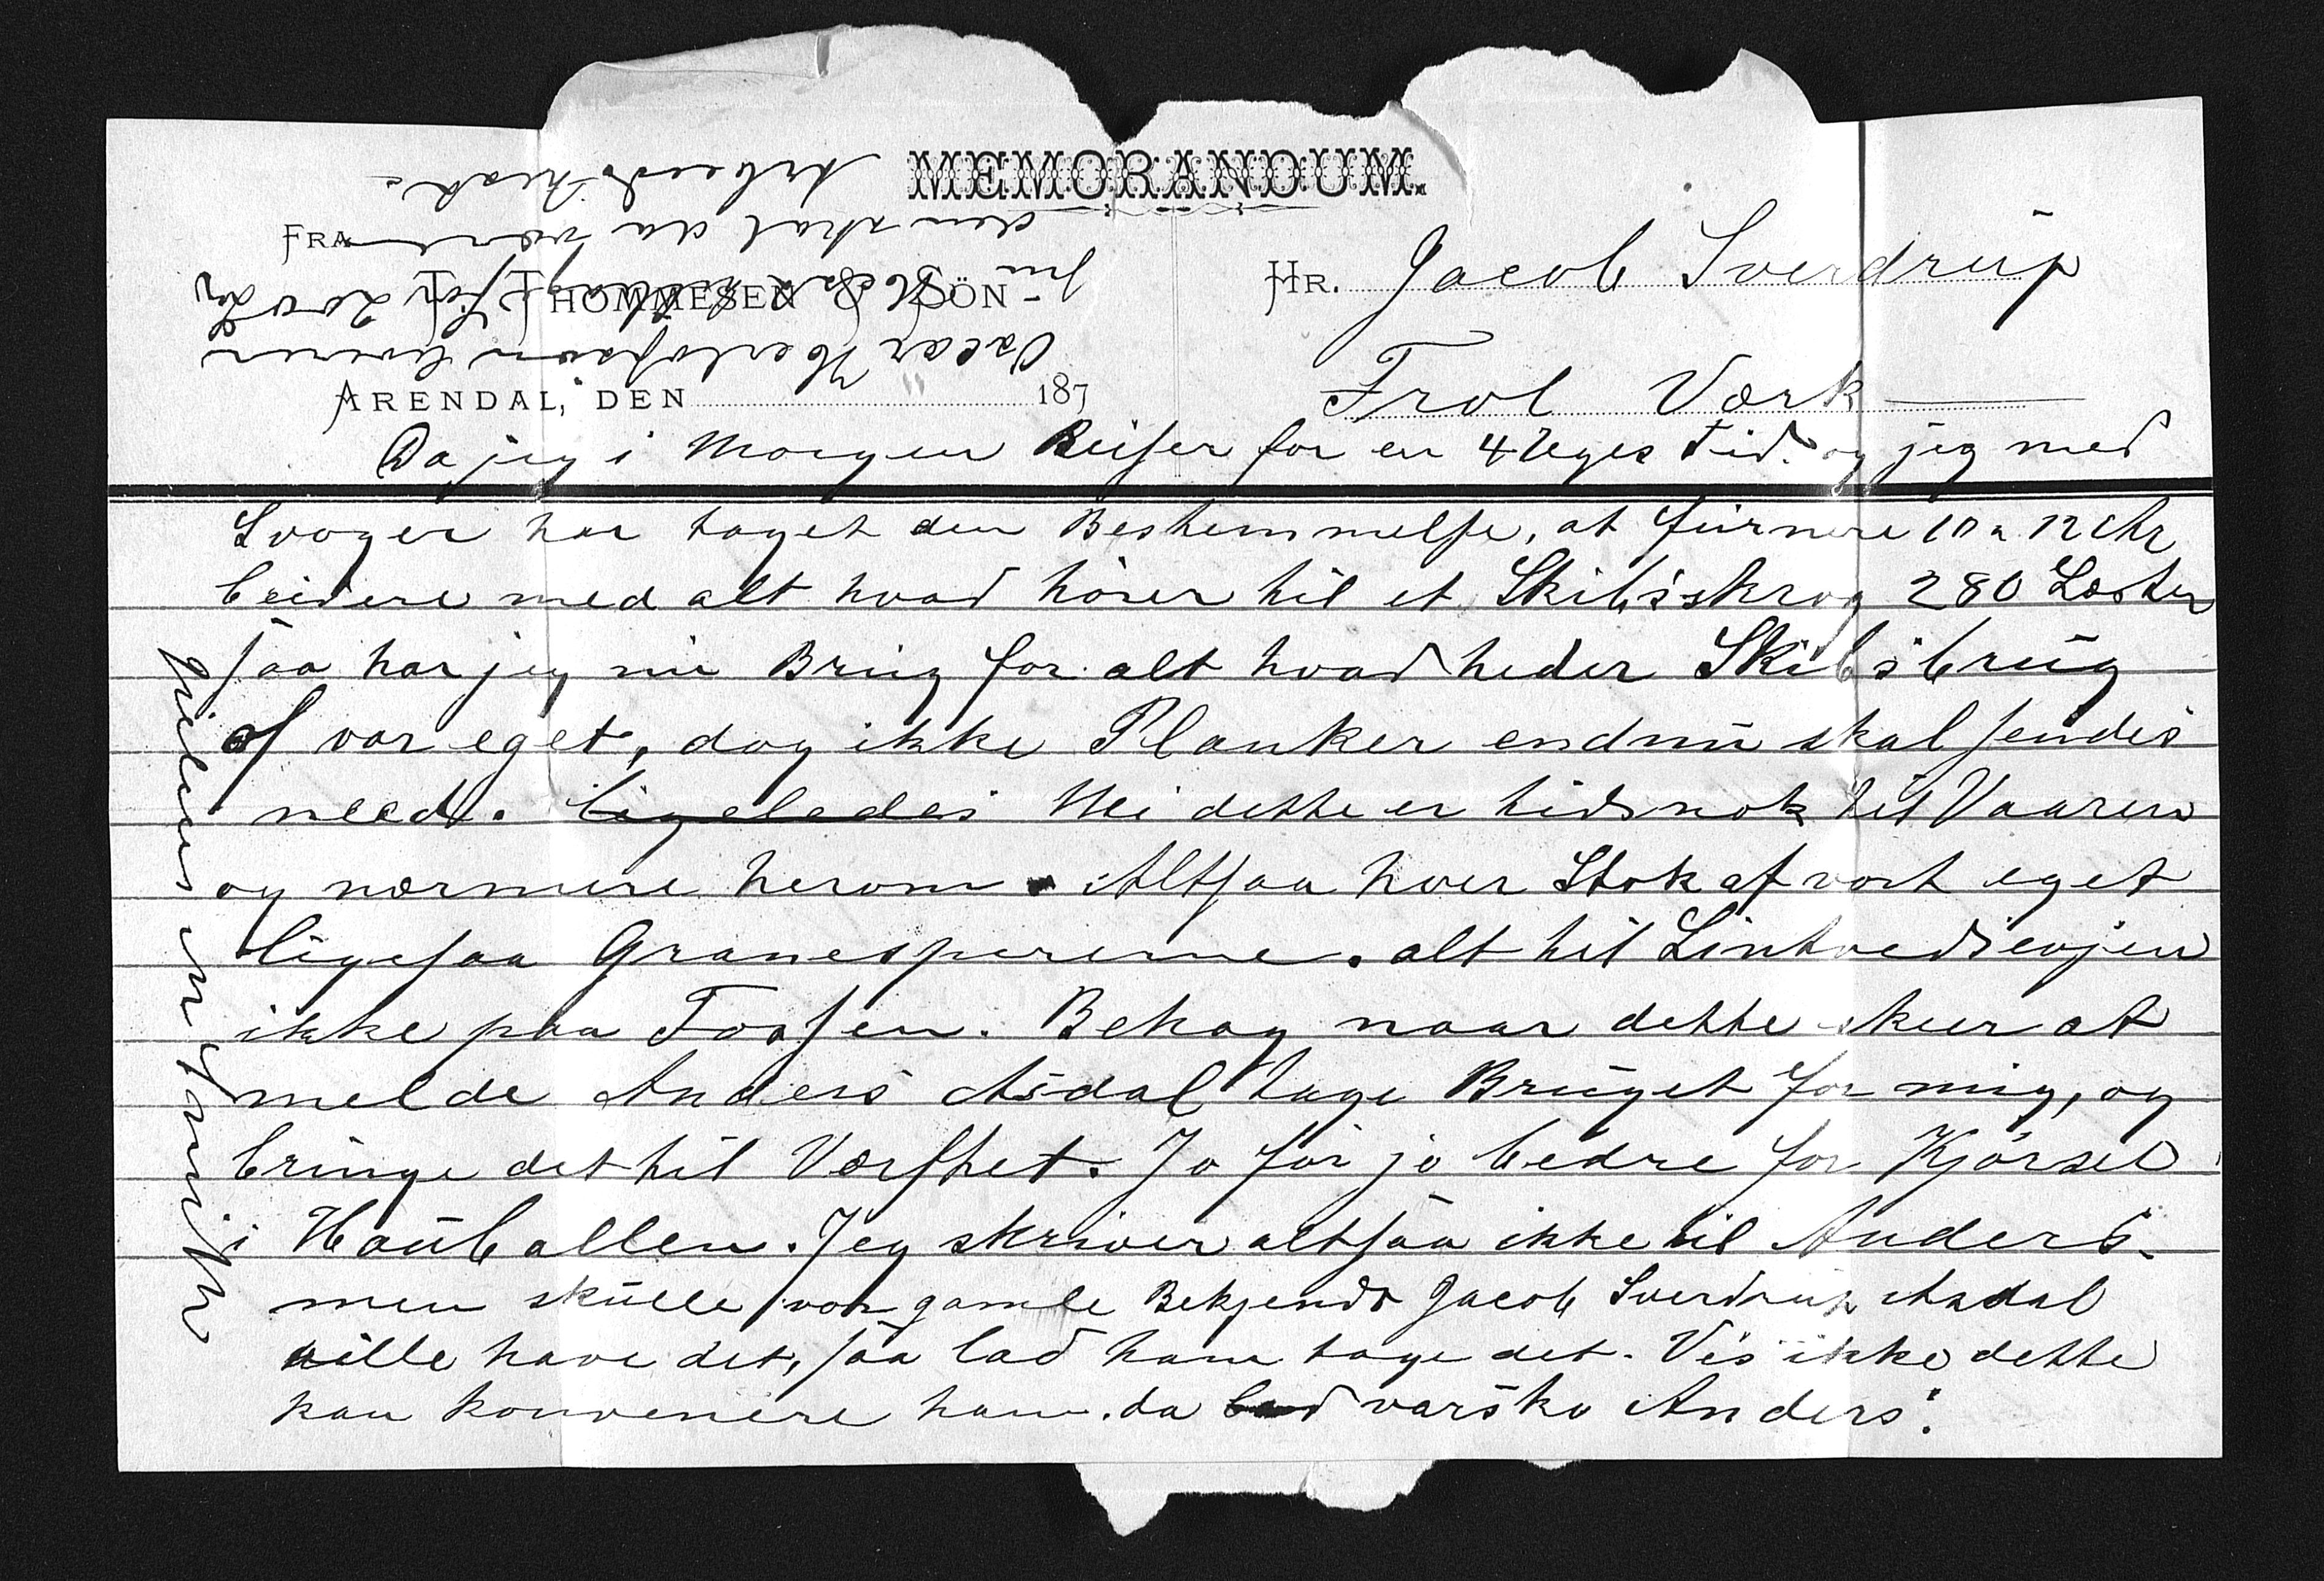 MEMORANDUM.
FRA
T. THOMMESEN & SÖN
ARENDAL, DEN 187
HR. Jacob Sverdrup
Frol Værk
Da jeg i Morgen Reiser for en 4 Uges Tid. og jeg med
Svoger har taget den Bestemmelse, at 10 a 12
med alt hvad hörer til et Skibsskrog 280 Læster
saa har jeg nu Brug for alt hvad heder Skibsbrug
af vor eget, dog ikke Planker endnu skal sendes
need. Ligeledes Nei dette er tidsnok til Vaaren
og nærmere herom. Altsaa hver Stok af vort eget
ligesaa Granespererne. alt til
ikke paa Fossen. Behag naar dette skeer at
melde Anders Asdal tage Bruget for mig, og
bringe det til Værftet. Jo för jo bedre for Kjörsel
i . Jeg skriver altsaa ikke til Anders.
men skulle vor gamle Bekjendt Jacob Sverdrup Asdal
ville have det, saa lad ham tage det. Vis ikke dette
kan konvenere ham. da varsko Anders.
Oscar
den skal da være